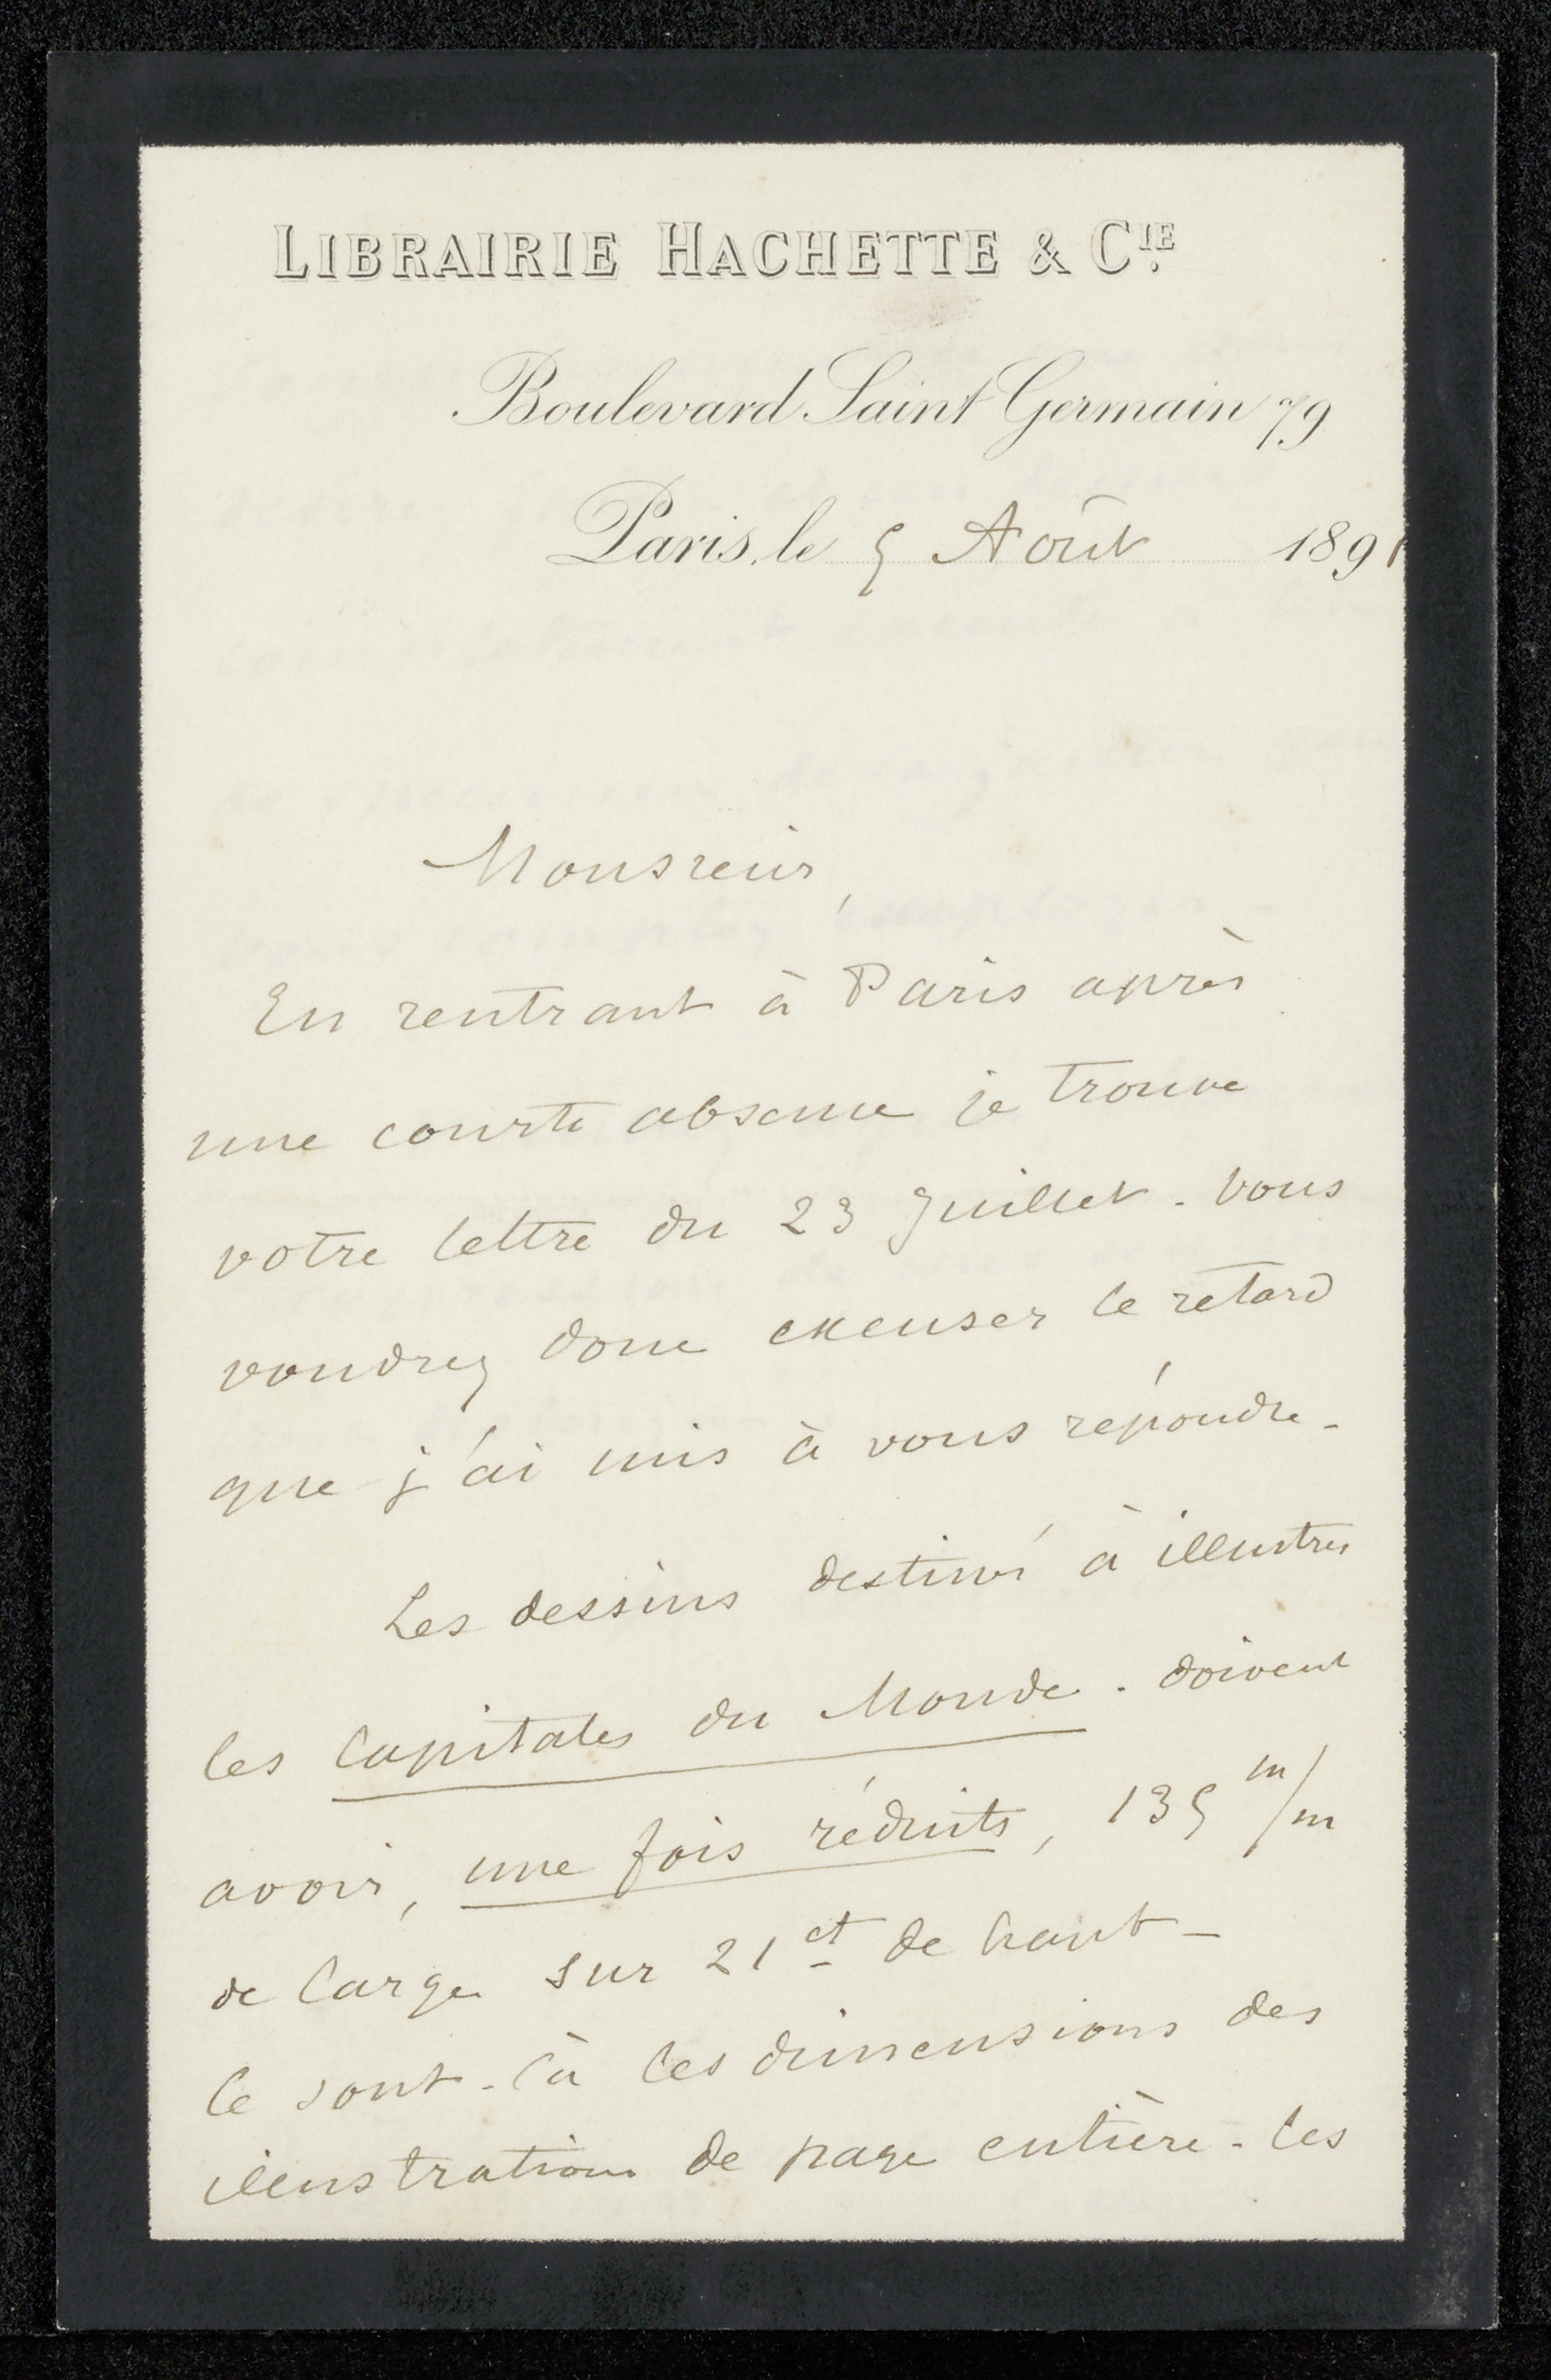 LIBRAIRIE HACHETTE & CIE.
Boulevard Saint Germain 79
Paris, le 5 Août 1891
Monsieur,
En rentrant à Paris après
une courte absence je trouve
votre lettre du 23 Juillet. Vous
voudrez donc excuser le retard
que j'ai mis à vous répondre.
Les dessins destinés à illustrer
les Capitales du Monde. doivent
avoir, une fois réduits, 135 m/m
de large sur 21 ct de haut -
Ce sont-là les dimensions des
illustrations de page entière. Les